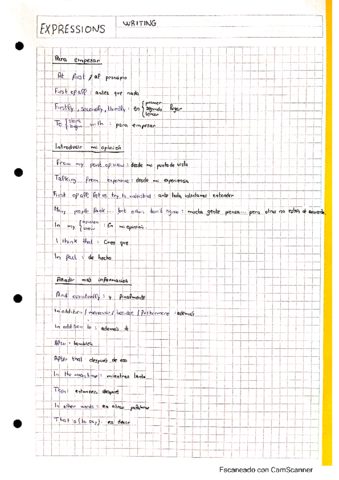 EXPRESSIONS
WRITING
Para empezar
At first / al principio
First of all : antes que nada
Firstly, secondly, thirdly : en { primer segundo tercer lugar
To { start begin with : para empezar
Introducir mi opinión
From my point of view : desde mi punto de vista
Talking from experience : desde mi experiencia
First of all, let us try to understand : ante todo intentamos entender
Many people think... but others don't agree : mucha gente piensa... pero otros no están de acuerdo
In my { opinion : En mi opinión
I think that : Creo que
In fact : de hecho
Añadir más información
And eventually : y finalmente
In addition / moreover / besides / furthermore : además
In addition to : además de
Also : también
After that : después de eso
In the meantime : mientras tanto
Then : entonces, después
In other words : en otras palabras
That is (to say) : es decir
Escaneado con CamScanner